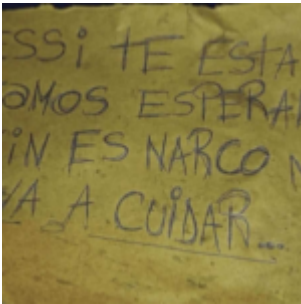 ESSi TE ESTA
aMOS ESPERA
iN ES NARCO
VA A CUiDAR...